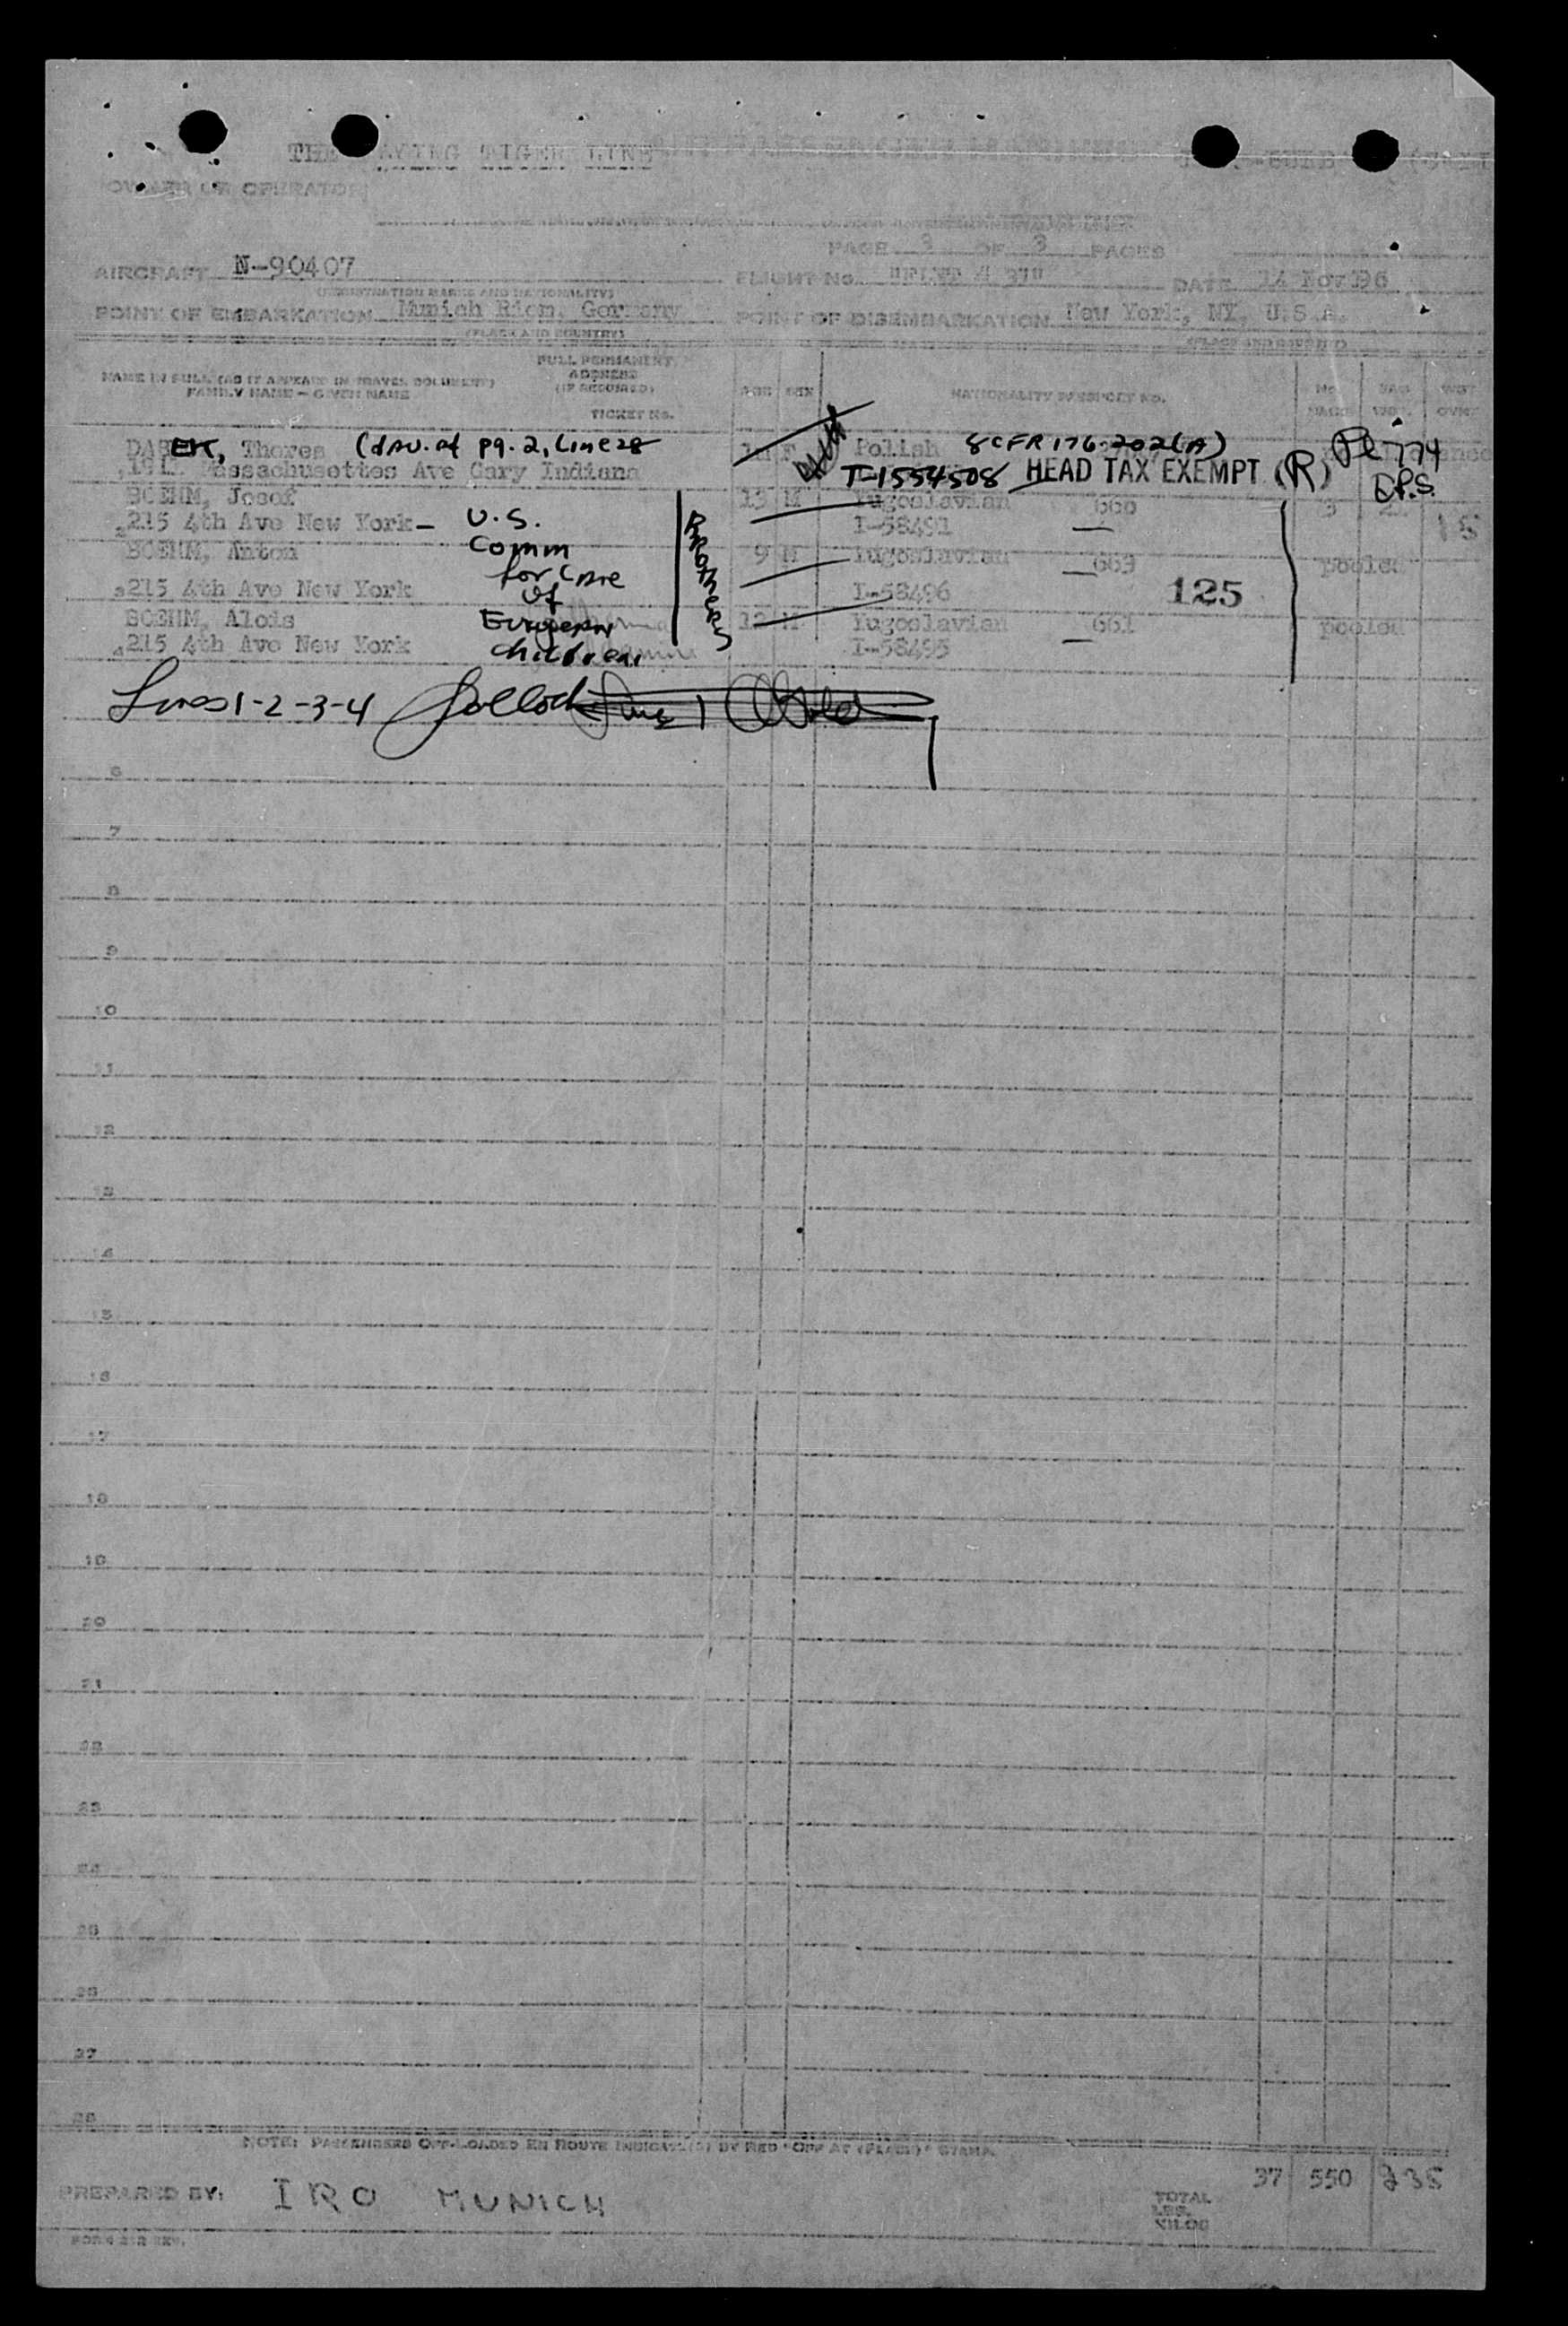 TIGER LINE
OWNER OR OPERATOR
PAGE 3 OF 3 PAGES
AIRCRAFT N-90407 FLIGHT No. DATE 14 Nov
(REGISTRATION MARKS AND NATIONALITY)
POINT OF EMBARKATION Munich Riem, Germany POINT OF DISEMBARKATION New York, NY, U.S.A.
(PLACE AND COUNTRY)
FULL PERMANENT
NAME IN FULL (AS IT APPEARS IN TRAVEL DOCUMENT) ADDRESS
FAMILY NAME – GIVEN NAME (IF REQUIRED) AGE SEX NATIONALITY PASSPORT NO. No.
TICKET No.
EK, (dau. of pg. 2, Line 28 F Polish 8 CFR 176.202(A)
Massachusettes Ave Gary Indiana T-1554508 HEAD TAX EXEMPT (R) 774
D.P.S.
BOEHM, Josef 13 M Yugoslavian 660 3
2 215 4th Ave New York – U.S. I-58491 15
BOEHM, Anton Comm 9 M Yugoslavian 663 pooled
for Care
3 215 4th Ave New York of BROTHERS I-58496 125
BOEHM, Alois European 12 M Yugoslavian 661 pooled
4 215 4th Ave New York Children I-58495
Lines 1-2-3-4
6
7
8
9
10
11
12
13
14
15
16
17
18
19
20
21
22
23
24
25
26
27
28
NOTE: PASSENGERS OFF-LOADED EN ROUTE INDICATE(D) BY RED "OFF AT (PLACE)" STAMP.
37 550 235
PREPARED BY: IRO MUNICH
TOTAL
LBS.
KILOS